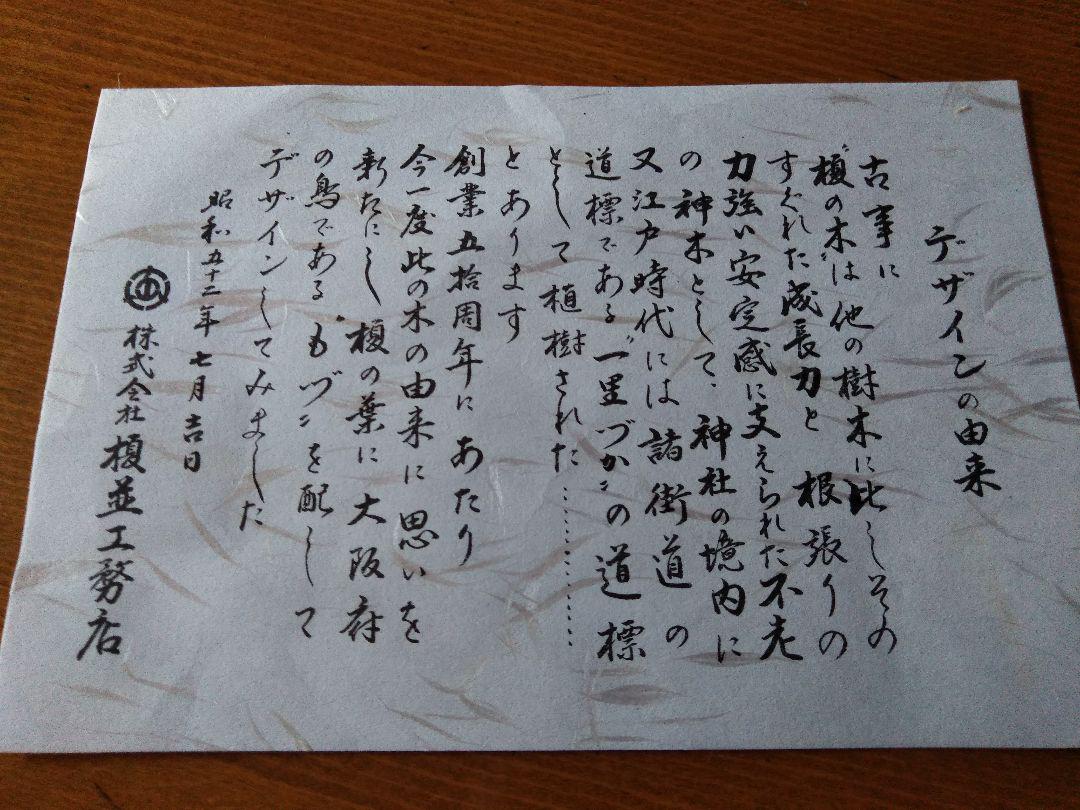 デザインの由来
古事に
"榎の木"は他の樹木に比しその
すぐれた成長力と 根張りの
力強い安定感に支えられた不老
の神木として、神社の境内に
又江戸時代には諸街道の
道標である"一里づか"の道標
として植樹された…………
とあります
創業五拾周年にあたり
今一度此の木の由来に思いを
新たにし 榎の葉に大阪府
の鳥である"もづ"を配して
デザインしてみました
昭和五十二年七月吉日
株式会社 榎並工務店